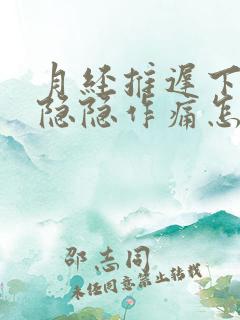 月经推迟下
隐隐作痛怎
邵志同
未经同意禁止转载